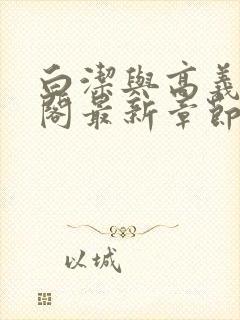 白潔與高義
閣最新章節
以城